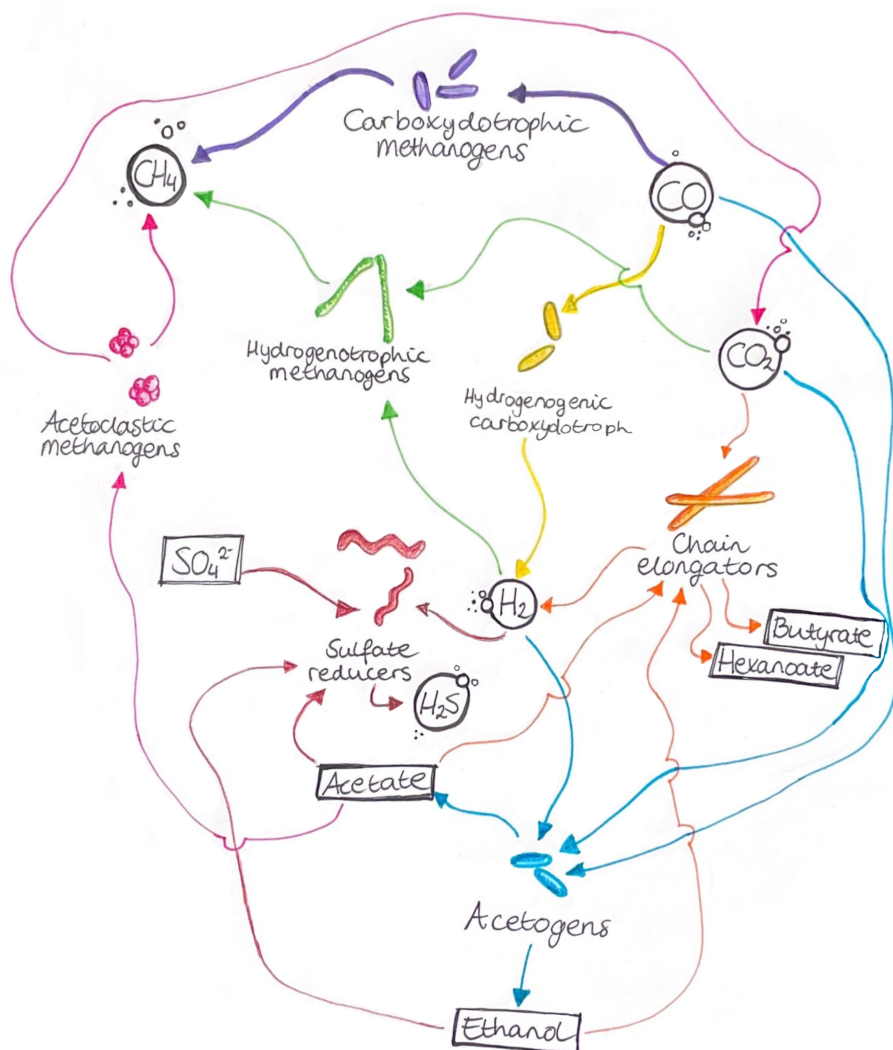 Carboxydotrophic
methanogens
CH₄
CO
CO₂
Hydrogenotrophic
methanogens
Hydrogenogenic
carboxydotroph
Acetoclastic
methanogens
SO₄²⁻
H₂
Chain
elongators
Butyrate
Hexanoate
Sulfate
reducers
H₂S
Acetate
Acetogens
Ethanol